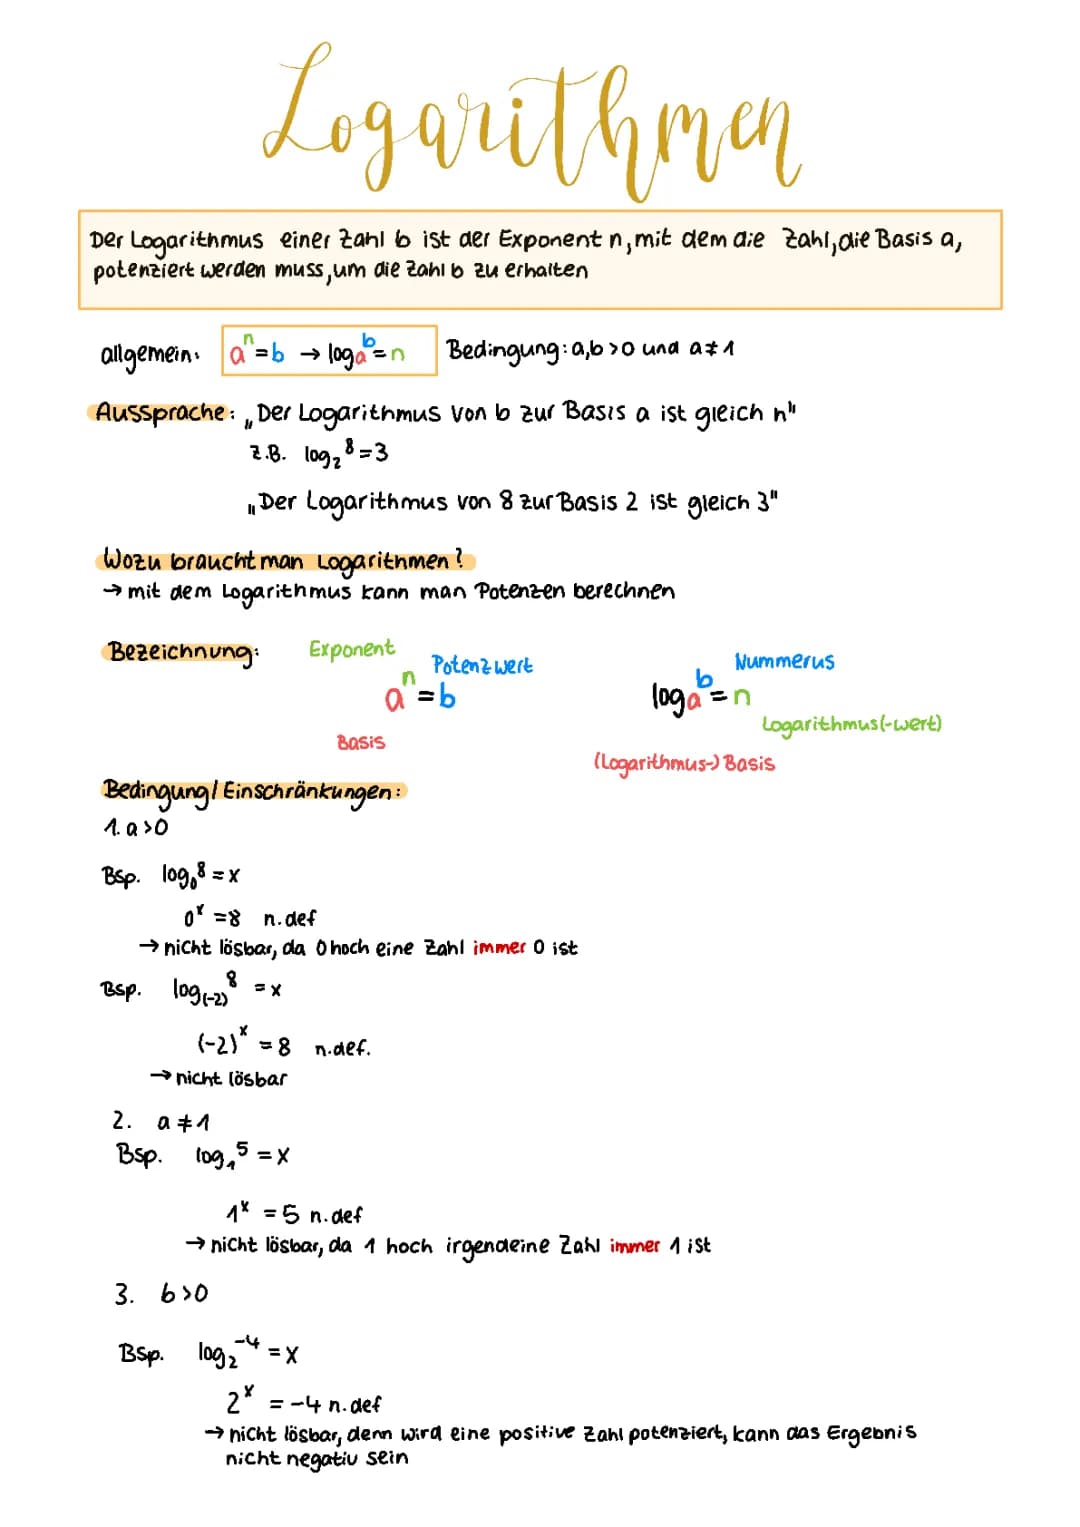 Logarithmen
Der Logarithmus einer Zahl b ist der Exponent n, mit dem die Zahl, die Basis a,
potenziert werden muss, um die Zahl b zu erhalten
allgemein: aⁿ = b → logₐ b = n Bedingung: a,b >0 und a ≠ 1
Aussprache: „Der Logarithmus von b zur Basis a ist gleich n"
z.B. log₂ 8 = 3
„Der Logarithmus von 8 zur Basis 2 ist gleich 3"
Wozu braucht man Logarithmen?
→ mit dem Logarithmus kann man Potenzen berechnen
Bezeichnung: Exponent Potenzwert Nummerus
aⁿ = b logₐ b = n
Logarithmus(-wert)
Basis (Logarithmus-) Basis
Bedingung/Einschränkungen:
1. a >0
Bsp. log₀ 8 = x
0ˣ = 8 n.def
→ nicht lösbar, da 0 hoch eine Zahl immer 0 ist
Bsp. log₍₋₂₎ 8 = x
(-2)ˣ = 8 n.def.
→ nicht lösbar
2. a ≠ 1
Bsp. log₁ 5 = x
1ˣ = 5 n.def
→ nicht lösbar, da 1 hoch irgendeine Zahl immer 1 ist
3. b >0
Bsp. log₂ -4 = x
2ˣ = -4 n.def
→ nicht lösbar, denn wird eine positive Zahl potenziert, kann das Ergebnis
nicht negativ sein